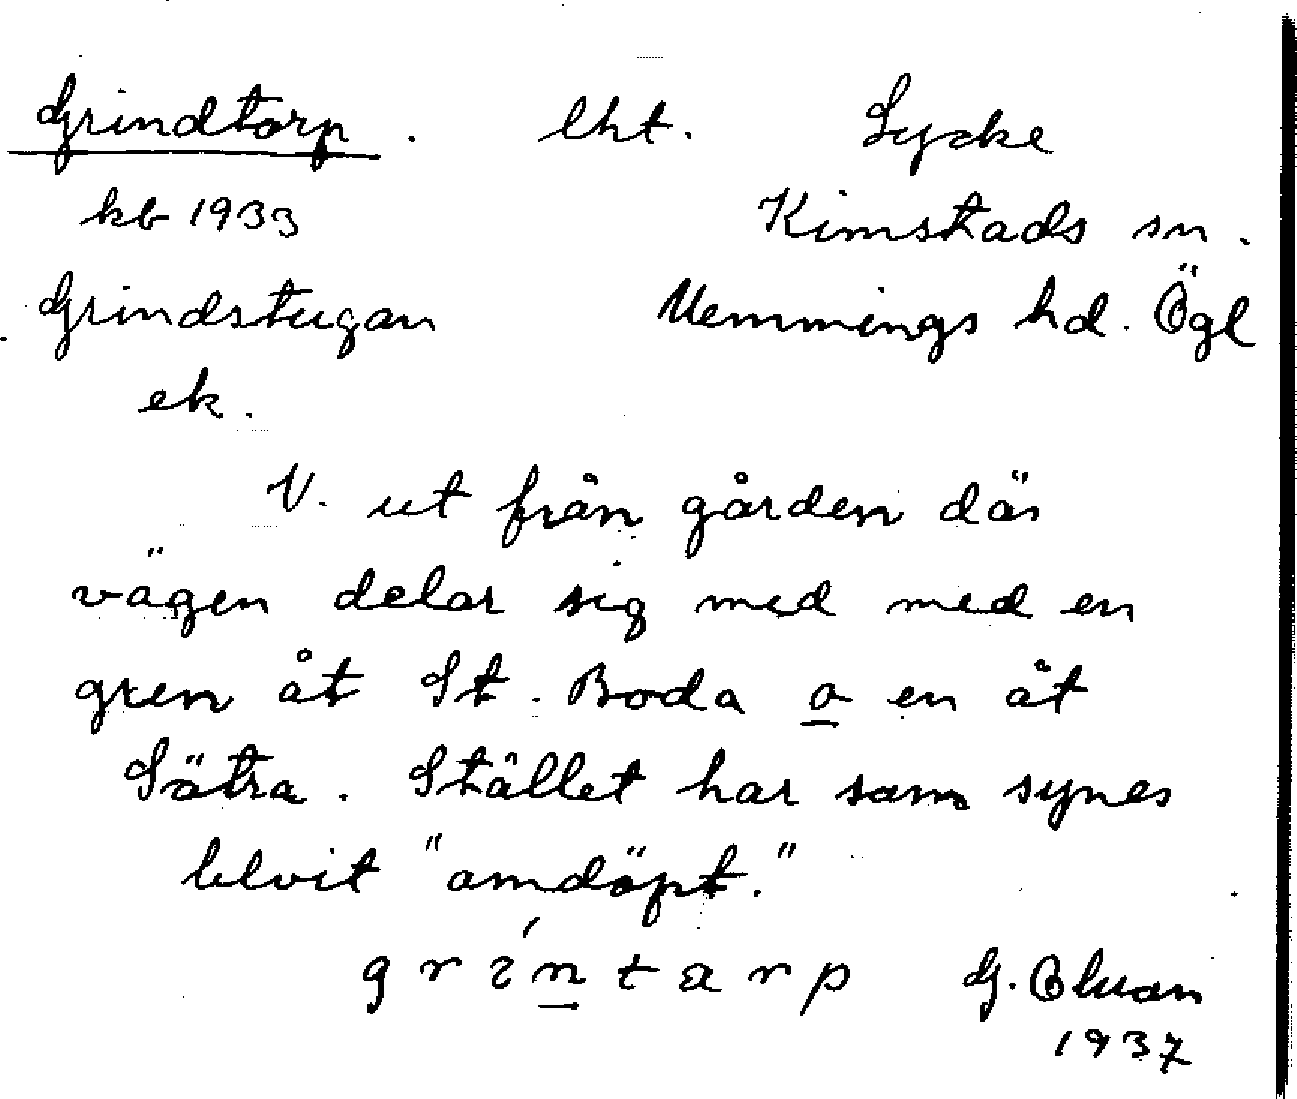 Grindtorp. lht. Lycke
kb 1933 Kimstads sn.
Grindstugan Memmings hd. Ögl
ek.
V. ut från gården där
vägen delar sig med med en
gren åt St. Boda o en åt
Sätra. Stället har som synes
blvit "omdöpt."
grintarp G.
1937